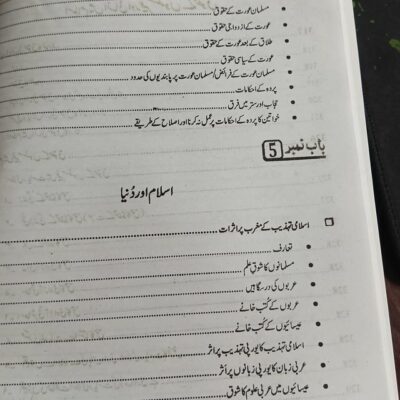 مسلمان عورت کے حقوق
عورت کے ازدواجی حقوق
طلاق کے بعد عورت کے حقوق
عورت کے سیاسی حقوق
مسلمان عورت کے فرائض/مسلمان عورت پر پابندیوں کی حدود
پردہ کے احکامات
حجاب اور ستر میں فرق
خواتین کا پردہ کے احکامات پر عمل نہ کرنا اور اصلاح کے طریقے
باب نمبر 5
اسلام اور دُنیا
اسلامی تہذیب کے مغرب پر اثرات
تعارف
مسلمانوں کا شوقِ علم
عربوں کی درسگاہیں
عربوں کے کُتب خانے
عیسائیوں کے کُتب خانے
اسلامی تہذیب کا یورپی تہذیب پر اثر
عربی زبان کا یورپی زبانوں پر اثر
عیسائیوں میں عربی علوم کا شوق